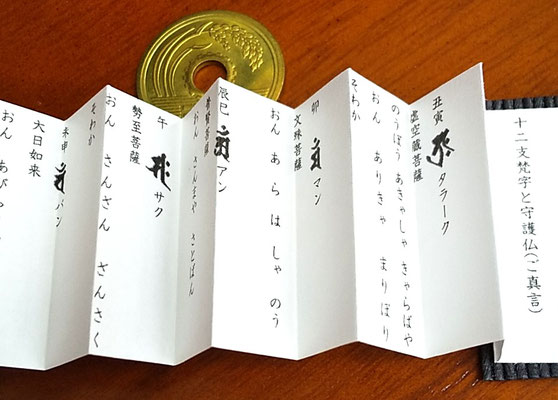 十二支梵字と守護仏(ご真言)
丑寅 タラーク
虚空蔵菩薩
のうぼう あきゃしゃ きゃらばや
おん ありきゃ まりぼり
そわか
卯 マン
文殊菩薩
おん あ ら は しゃ のう
辰巳 アン
普賢菩薩
おん さんまや さとばん
午 サク
勢至菩薩
おん さんざん さんさく
そわか
未申 バン
大日如来
おん あびら